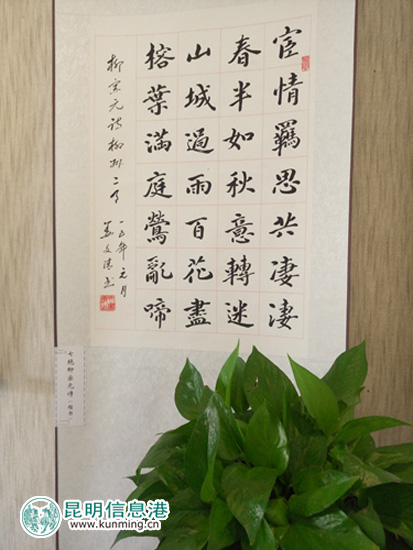 宦情羈思共淒淒
春半如秋意轉迷
山城過雨百花盡
榕葉滿庭鶯亂啼
柳宗元诗柳州二月
一五年元月
七绝柳宗元诗（楷书）
昆明信息港
www.kunming.cn